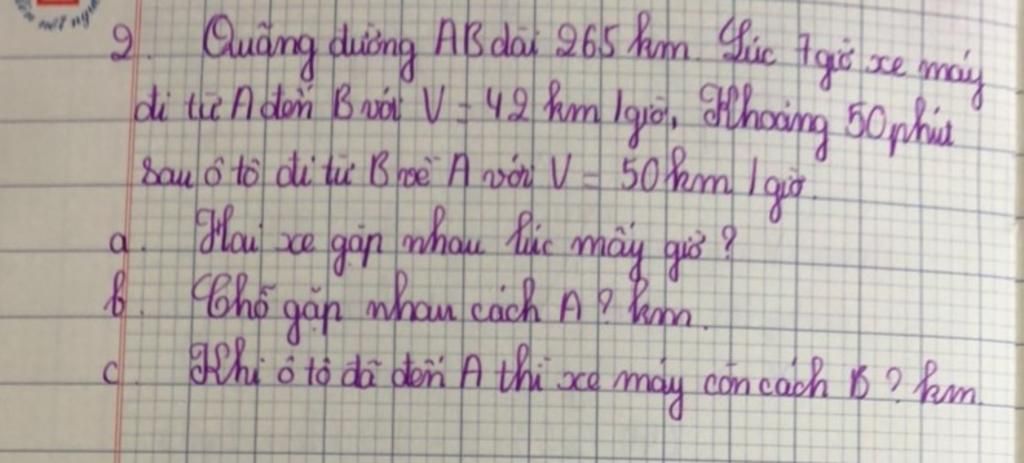 2. Quãng đường AB dài 265 km. Lúc 7 giờ xe máy
đi từ A đến B với V = 42 km / giờ. Khoảng 50 phút
sau ô tô đi từ B về A với V = 50 km / giờ.
a. Hai xe gặp nhau lúc mấy giờ ?
b. Chỗ gặp nhau cách A ? km.
c. Khi ô tô đã đến A thì xe máy còn cách B ? km.